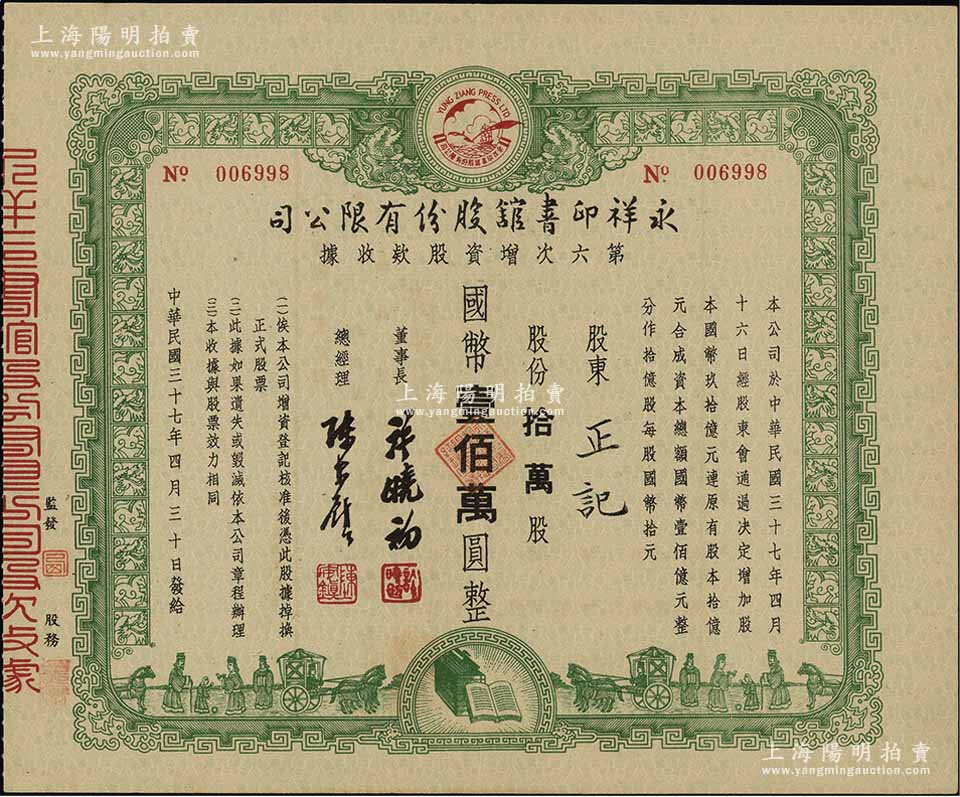 上海陽明拍賣
www.yangmingauction.com
YUNG ZIANG PRESS LTD
No 006998
No 006998
永祥印書館股份有限公司
第六次增資股款收據
本公司於中華民國三十七年四月
十六日經股東會通過決定增加股
本國幣玖拾億元連原有股本拾億
元合成資本總額國幣壹佰億元整
分作拾億股每股國幣拾元
股東 正記
股份拾萬股
國幣壹佰萬圓整
董事長
總經理
㈠俟本公司增資登記核准後憑此股據掉換
正式股票
㈡此據如果遺失或毀滅依本公司章程辦理
㈢本收據與股票效力相同
中華民國三十七年四月三十日發給
監發
股務
上海陽明拍賣
www.yangmingauction.com
上海陽明拍賣
www.yangmingauction.com